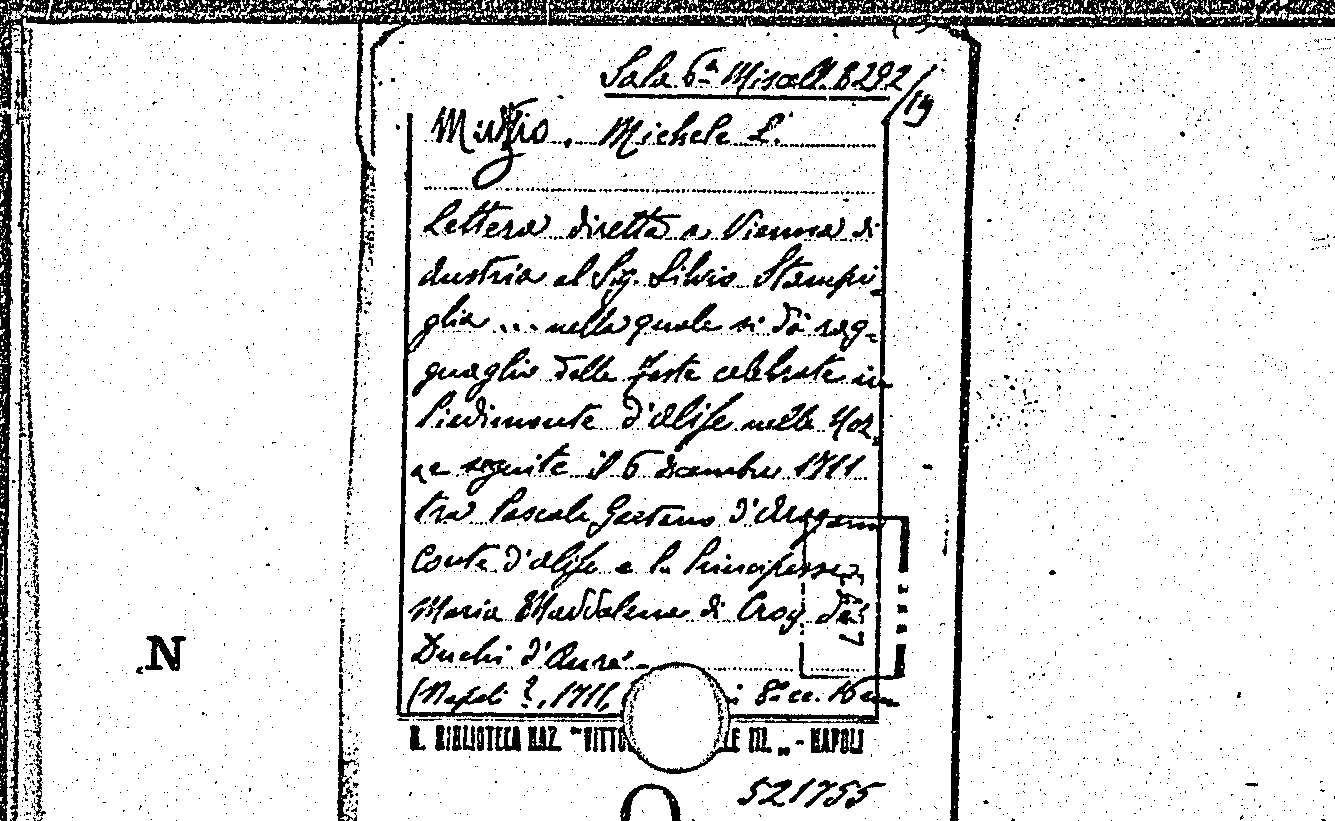 Sala 6ª Miscell. B 292/19
Muzio, Michele L.
Lettera diretta a Vienna di
Austria al Sig. Silvio Stampi-
glia ... nella quale si dà rag-
guaglio delle feste celebrate in
Piedimonte d'Alife nelle Noz-
ze seguite il 6 Dicembre 1711
tra Pascale Gaetano d'Aragona
Conte d'Alife e la Principessa
Maria Maddalena di Croy dei
Duchi d'Auré.
(Napoli?, 1711, 8º cc. 16
R. BIBLIOTECA NAZ. "VITTO LE III." - NAPOLI
521755
N